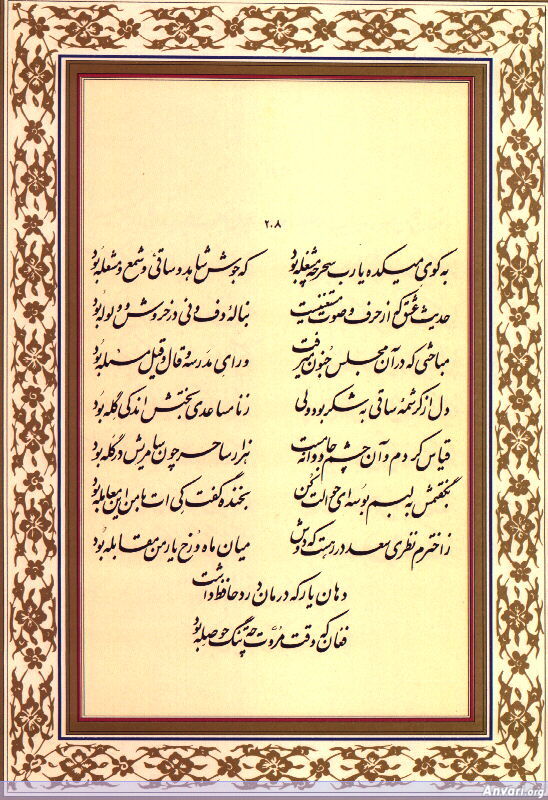 ۲۰۸
به کوی میکده یارب سحر چه مشغله بود که جوش شاهد و ساقی و شمع و مشعله بود
حدیث عشق که از حرف و صوت مستغنیست بنالهٔ دف و نی در خروش و ولوله بود
مباحثی که در آن مجلس جنون میرفت ورای مدرسه و قال و قیل مسئله بود
دل از کرشمهٔ ساقی به شکر بود ولی ز نامساعدی بختش اندکی گله بود
قیاس کردم و آن چشم جادوانهٔ مست هزار ساحر چون سامریش در گله بود
بگفتمش به لبم بوسه‌ای حوالت کن بخنده گفت کی‌ات با من این معامله بود
ز اخترم نظری سعد در رهست که دوش میان ماه و رخ یار من مقابله بود
دهان یار که درمان درد حافظ داشت
فغان که وقت مروت چه تنگ حوصله بود
Anvari.org